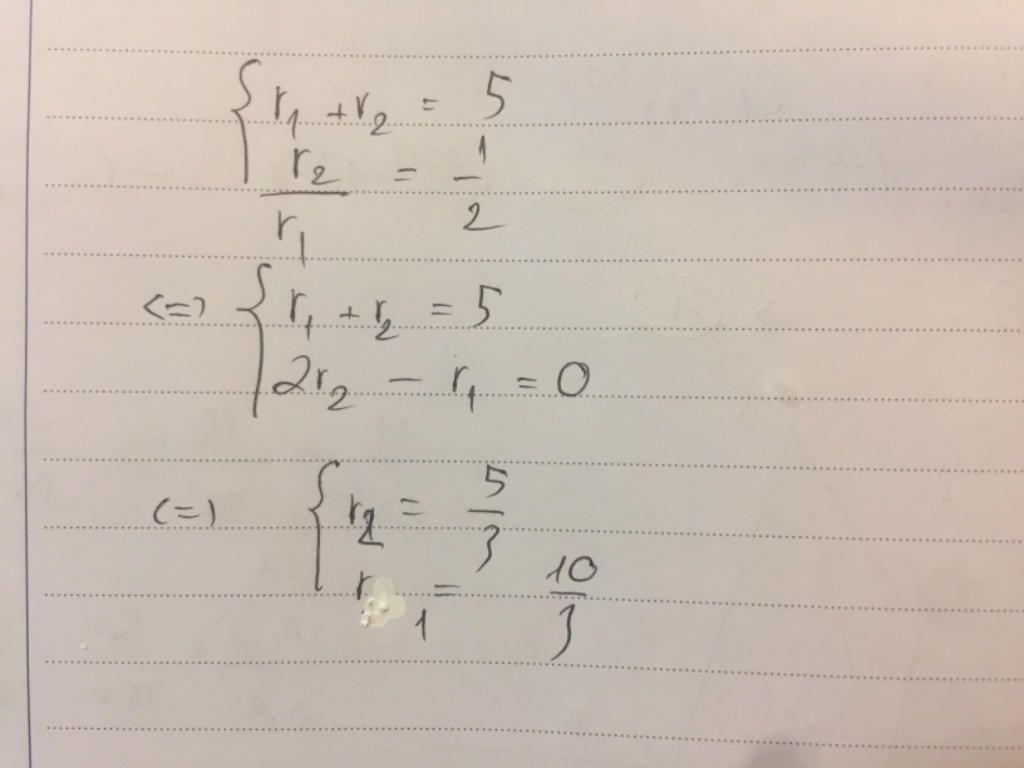 { r₁ + r₂ = 5
r₂/r₁ = 1/2
<=> { r₁ + r₂ = 5
2r₂ - r₁ = 0
(=) { r₂ = 5/3
r₁ = 10/3